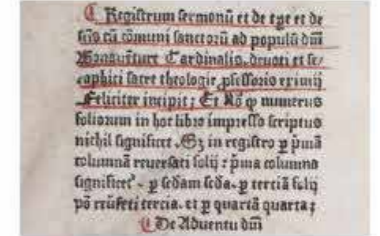 ⁋ Registrum sermonū et de tp̄e et de
sctis cū cōmuni sanctorū ad populū dn̄i
Bonauenture Cardinalis, deuoti et se/
raphici sacre theologie, p̄fessoris eximij
Feliciter incipit; Et Nō ꝙ numerus
foliorum in hoc libro impresso scriptus
nichil significet. Sz in registro p p̄mā
columnā reuersati folij : p̄ma columna
significet᷑. p scdam scda. p terciā folij
pō rr̄ufeti tercia. et p quartā quarta;
⁋ De Aduentu dn̄i